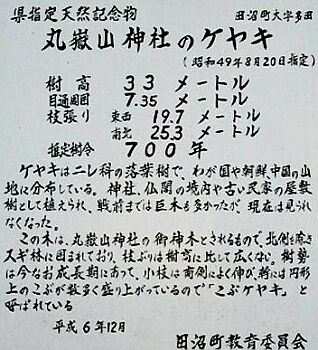 県指定天然記念物 田沼町大字多田
丸嶽山神社のケヤキ
(昭和49年8月20日指定)
樹高 33 メートル
目通周囲 7.35 メートル
枝張り 東西 19.7 メートル
南北 25.3 メートル
推定樹令 700 年
ケヤキはニレ科の落葉樹で、わが国や朝鮮、中国の山
地に分布している。神社、仏閣の境内や古い民家の屋敷
樹として植えられ、戦前までは巨木も多かったが現在は見られ
なくなった。
この木は、丸嶽山神社の御神木とされるもので、北側を除き
スギ林に囲まれており、枝ぶりは樹高に比して広くない。樹勢
は今なお成長期にあって、小枝は南側によく伸び、幹には円形
上のこぶが数多く盛り上がっているので「こぶケヤキ」と
呼ばれている
平成6年12月
田沼町教育委員会